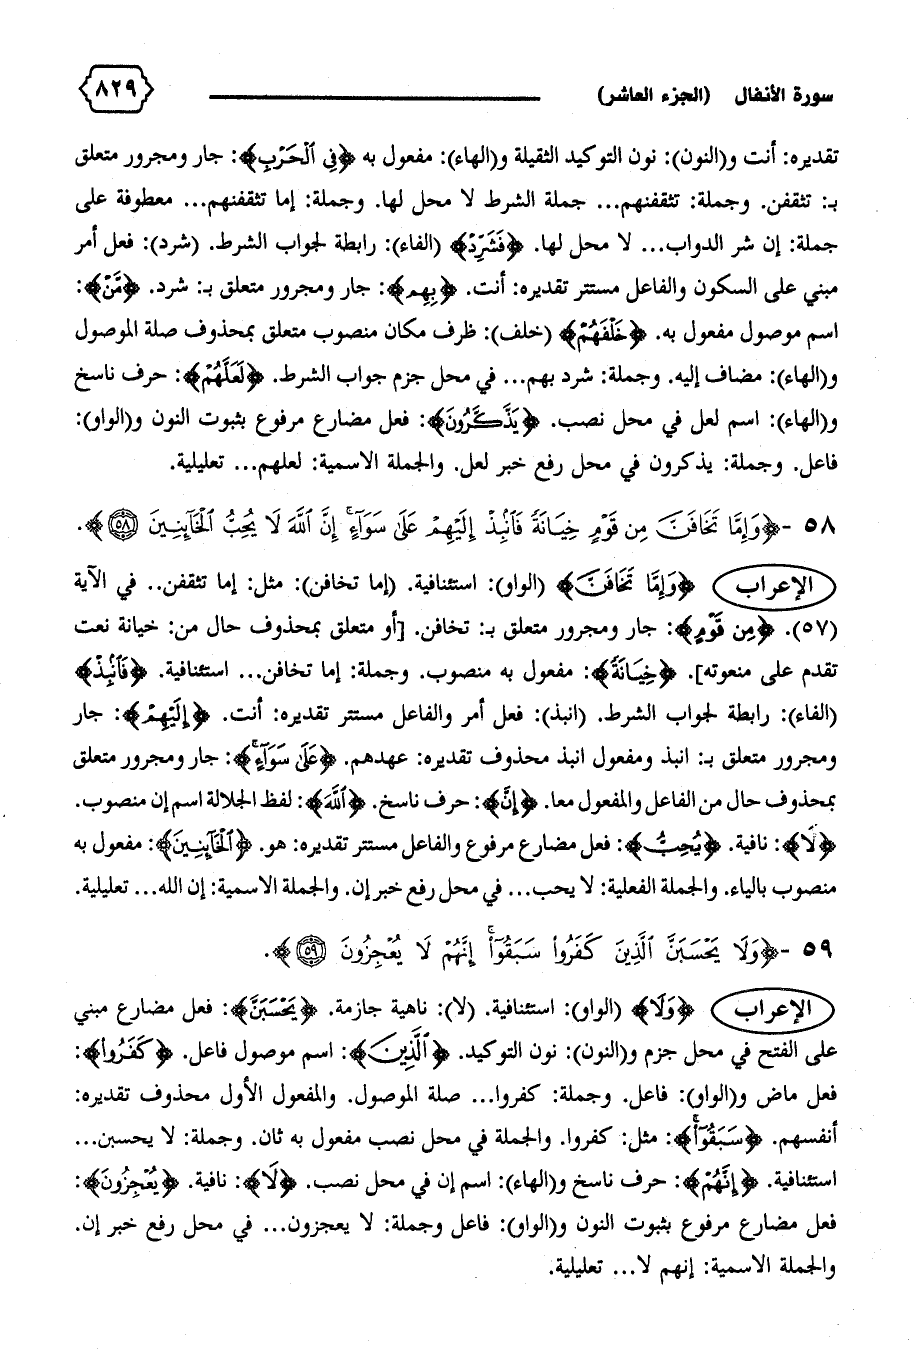 سورة الأنفال (الجزء العاشر) ٨٢٩
تقديره: أنت و(النون): نون التوكيد الثقيلة و(الهاء): مفعول به ﴿فِي ٱلْحَرْبِ﴾: جار ومجرور متعلق
بـ: تثقفن. وجملة: تثقفنهم... جملة الشرط لا محل لها. وجملة: إما تثقفنهم... معطوفة على
جملة: إن شر الدواب... لا محل لها. ﴿فَشَرِّدْ﴾ (الفاء): رابطة لجواب الشرط. (شرد): فعل أمر
مبني على السكون والفاعل مستتر تقديره: أنت. ﴿بِهِم﴾: جار ومجرور متعلق بـ: شرد. ﴿مَّنْ﴾:
اسم موصول مفعول به. ﴿خَلْفَهُمْ﴾ (خلف): ظرف مكان منصوب متعلق بمحذوف صلة الموصول
و(الهاء): مضاف إليه. وجملة: شرد بهم... في محل جزم جواب الشرط. ﴿لَعَلَّهُمْ﴾: حرف ناسخ
و(الهاء): اسم لعل في محل نصب. ﴿يَذَّكَّرُونَ﴾: فعل مضارع مرفوع بثبوت النون و(الواو):
فاعل. وجملة: يذكرون في محل رفع خبر لعل. والجملة الاسمية: لعلهم... تعليلية.
٥٨ -﴿وَإِمَّا تَخَافَنَّ مِن قَوْمٍ خِيَانَةً فَٱنۢبِذْ إِلَيْهِمْ عَلَىٰ سَوَآءٍ ۚ إِنَّ ٱللَّهَ لَا يُحِبُّ ٱلْخَآئِنِينَ ٥٨﴾.
الإعراب ﴿وَإِمَّا تَخَافَنَّ﴾ (الواو): استئنافية. (إما تخافن): مثل: إما تثقفن.. في الآية
(٥٧). ﴿مِن قَوْمٍ﴾: جار ومجرور متعلق بـ: تخافن. [أو متعلق بمحذوف حال من: خيانة نعت
تقدم على منعوته]. ﴿خِيَانَةً﴾: مفعول به منصوب. وجملة: إما تخافن... استئنافية. ﴿فَٱنۢبِذْ﴾
(الفاء): رابطة لجواب الشرط. (انبذ): فعل أمر والفاعل مستتر تقديره: أنت. ﴿إِلَيْهِمْ﴾: جار
ومجرور متعلق بـ: انبذ ومفعول انبذ محذوف تقديره: عهدهم. ﴿عَلَىٰ سَوَآءٍ ۚ﴾: جار ومجرور متعلق
بمحذوف حال من الفاعل والمفعول معا. ﴿إِنَّ﴾: حرف ناسخ. ﴿ٱللَّهَ﴾: لفظ الجلالة اسم إن منصوب.
﴿لَا﴾: نافية. ﴿يُحِبُّ﴾: فعل مضارع مرفوع والفاعل مستتر تقديره: هو. ﴿ٱلْخَآئِنِينَ﴾: مفعول به
منصوب بالياء. والجملة الفعلية: لا يحب... في محل رفع خبر إن. والجملة الاسمية: إن الله... تعليلية.
٥٩ -﴿وَلَا يَحْسَبَنَّ ٱلَّذِينَ كَفَرُوا۟ سَبَقُوٓا۟ ۚ إِنَّهُمْ لَا يُعْجِزُونَ ٥٩﴾.
الإعراب ﴿وَلَا﴾ (الواو): استئنافية. (لا): ناهية جازمة. ﴿يَحْسَبَنَّ﴾: فعل مضارع مبني
على الفتح في محل جزم و(النون): نون التوكيد. ﴿ٱلَّذِينَ﴾: اسم موصول فاعل. ﴿كَفَرُوا۟﴾:
فعل ماض و(الواو): فاعل. وجملة: كفروا... صلة الموصول. والمفعول الأول محذوف تقديره:
أنفسهم. ﴿سَبَقُوٓا۟ ۚ﴾: مثل: كفروا. والجملة في محل نصب مفعول به ثان. وجملة: لا يحسبن...
استئنافية. ﴿إِنَّهُمْ﴾: حرف ناسخ و(الهاء): اسم إن في محل نصب. ﴿لَا﴾: نافية. ﴿يُعْجِزُونَ﴾:
فعل مضارع مرفوع بثبوت النون و(الواو): فاعل وجملة: لا يعجزون... في محل رفع خبر إن.
والجملة الاسمية: إنهم لا... تعليلية.